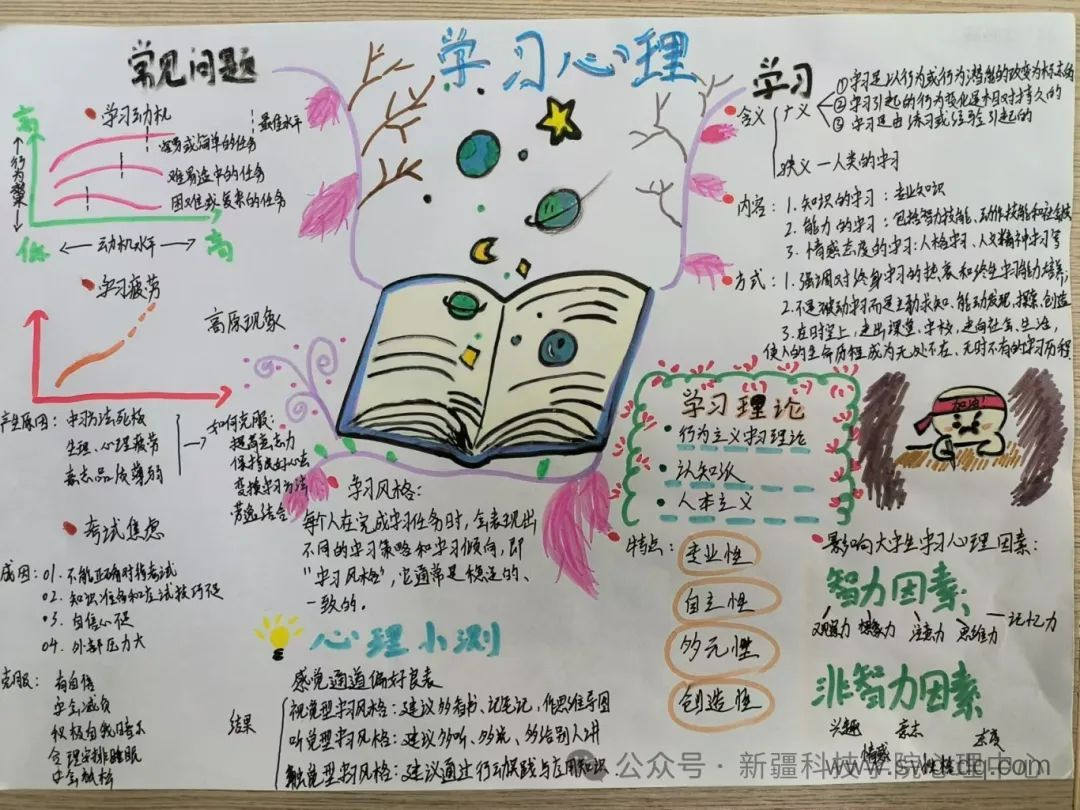 学习心理
常见问题
学习动机
最佳水平
容易或简单的任务
难易适中的任务
困难或复杂的任务
高
行为效果
低
动机水平
高
学习疲劳
高原现象
产生原因：学习方法死板
生理、心理疲劳
意志品质薄弱
如何克服：
提高意志力
保持良好心态
变换学习方法
劳逸结合
考试焦虑
成因：01. 不能正确对待考试
02. 知识准备和应试技巧不足
03. 自信心不足
04. 外部压力大
克服：有自信
学会减负
积极自我暗示
合理安排睡眠
学会放松
学习风格：
每个人在完成学习任务时，会表现出
不同的学习策略和学习倾向，即
“学习风格”，它通常是稳定的、
一致的。
心理小测
感觉通道偏好量表
结果
视觉型学习风格：建议多看书、记笔记、作思维导图
听觉型学习风格：建议多听、多说、多给别人讲
触觉型学习风格：建议通过行动实践与应用知识
学习
含义
广义
①学习是以行为或行为潜能的改变为标志的
②学习引起的行为变化是相对持久的
③学习是由练习或经验引起的
狭义—人类的学习
内容：1. 知识的学习：专业知识
2. 能力的学习：包括智力技能、动作技能和社会
3. 情感态度的学习：人格学习、人文精神学习等
方式：1. 强调对终身学习的热衷和终生学习能力培养；
2. 不是被动学习而是主动求知、能动发现、探索、创造
3. 在时空上，走出课堂、学校，走向社会、生活，
使人的生命历程成为无处不在、无时不有的学习历程
学习理论
行为主义学习理论
认知派
人本主义
加油！
特点：
专业性
自主性
多元性
创造性
影响大学生学习心理因素：
智力因素
观察力 想象力 注意力 思维力 记忆力
非智力因素
兴趣 意志
情感 性格
公众号·新疆科技学院心理中心
www.sywgdq.com